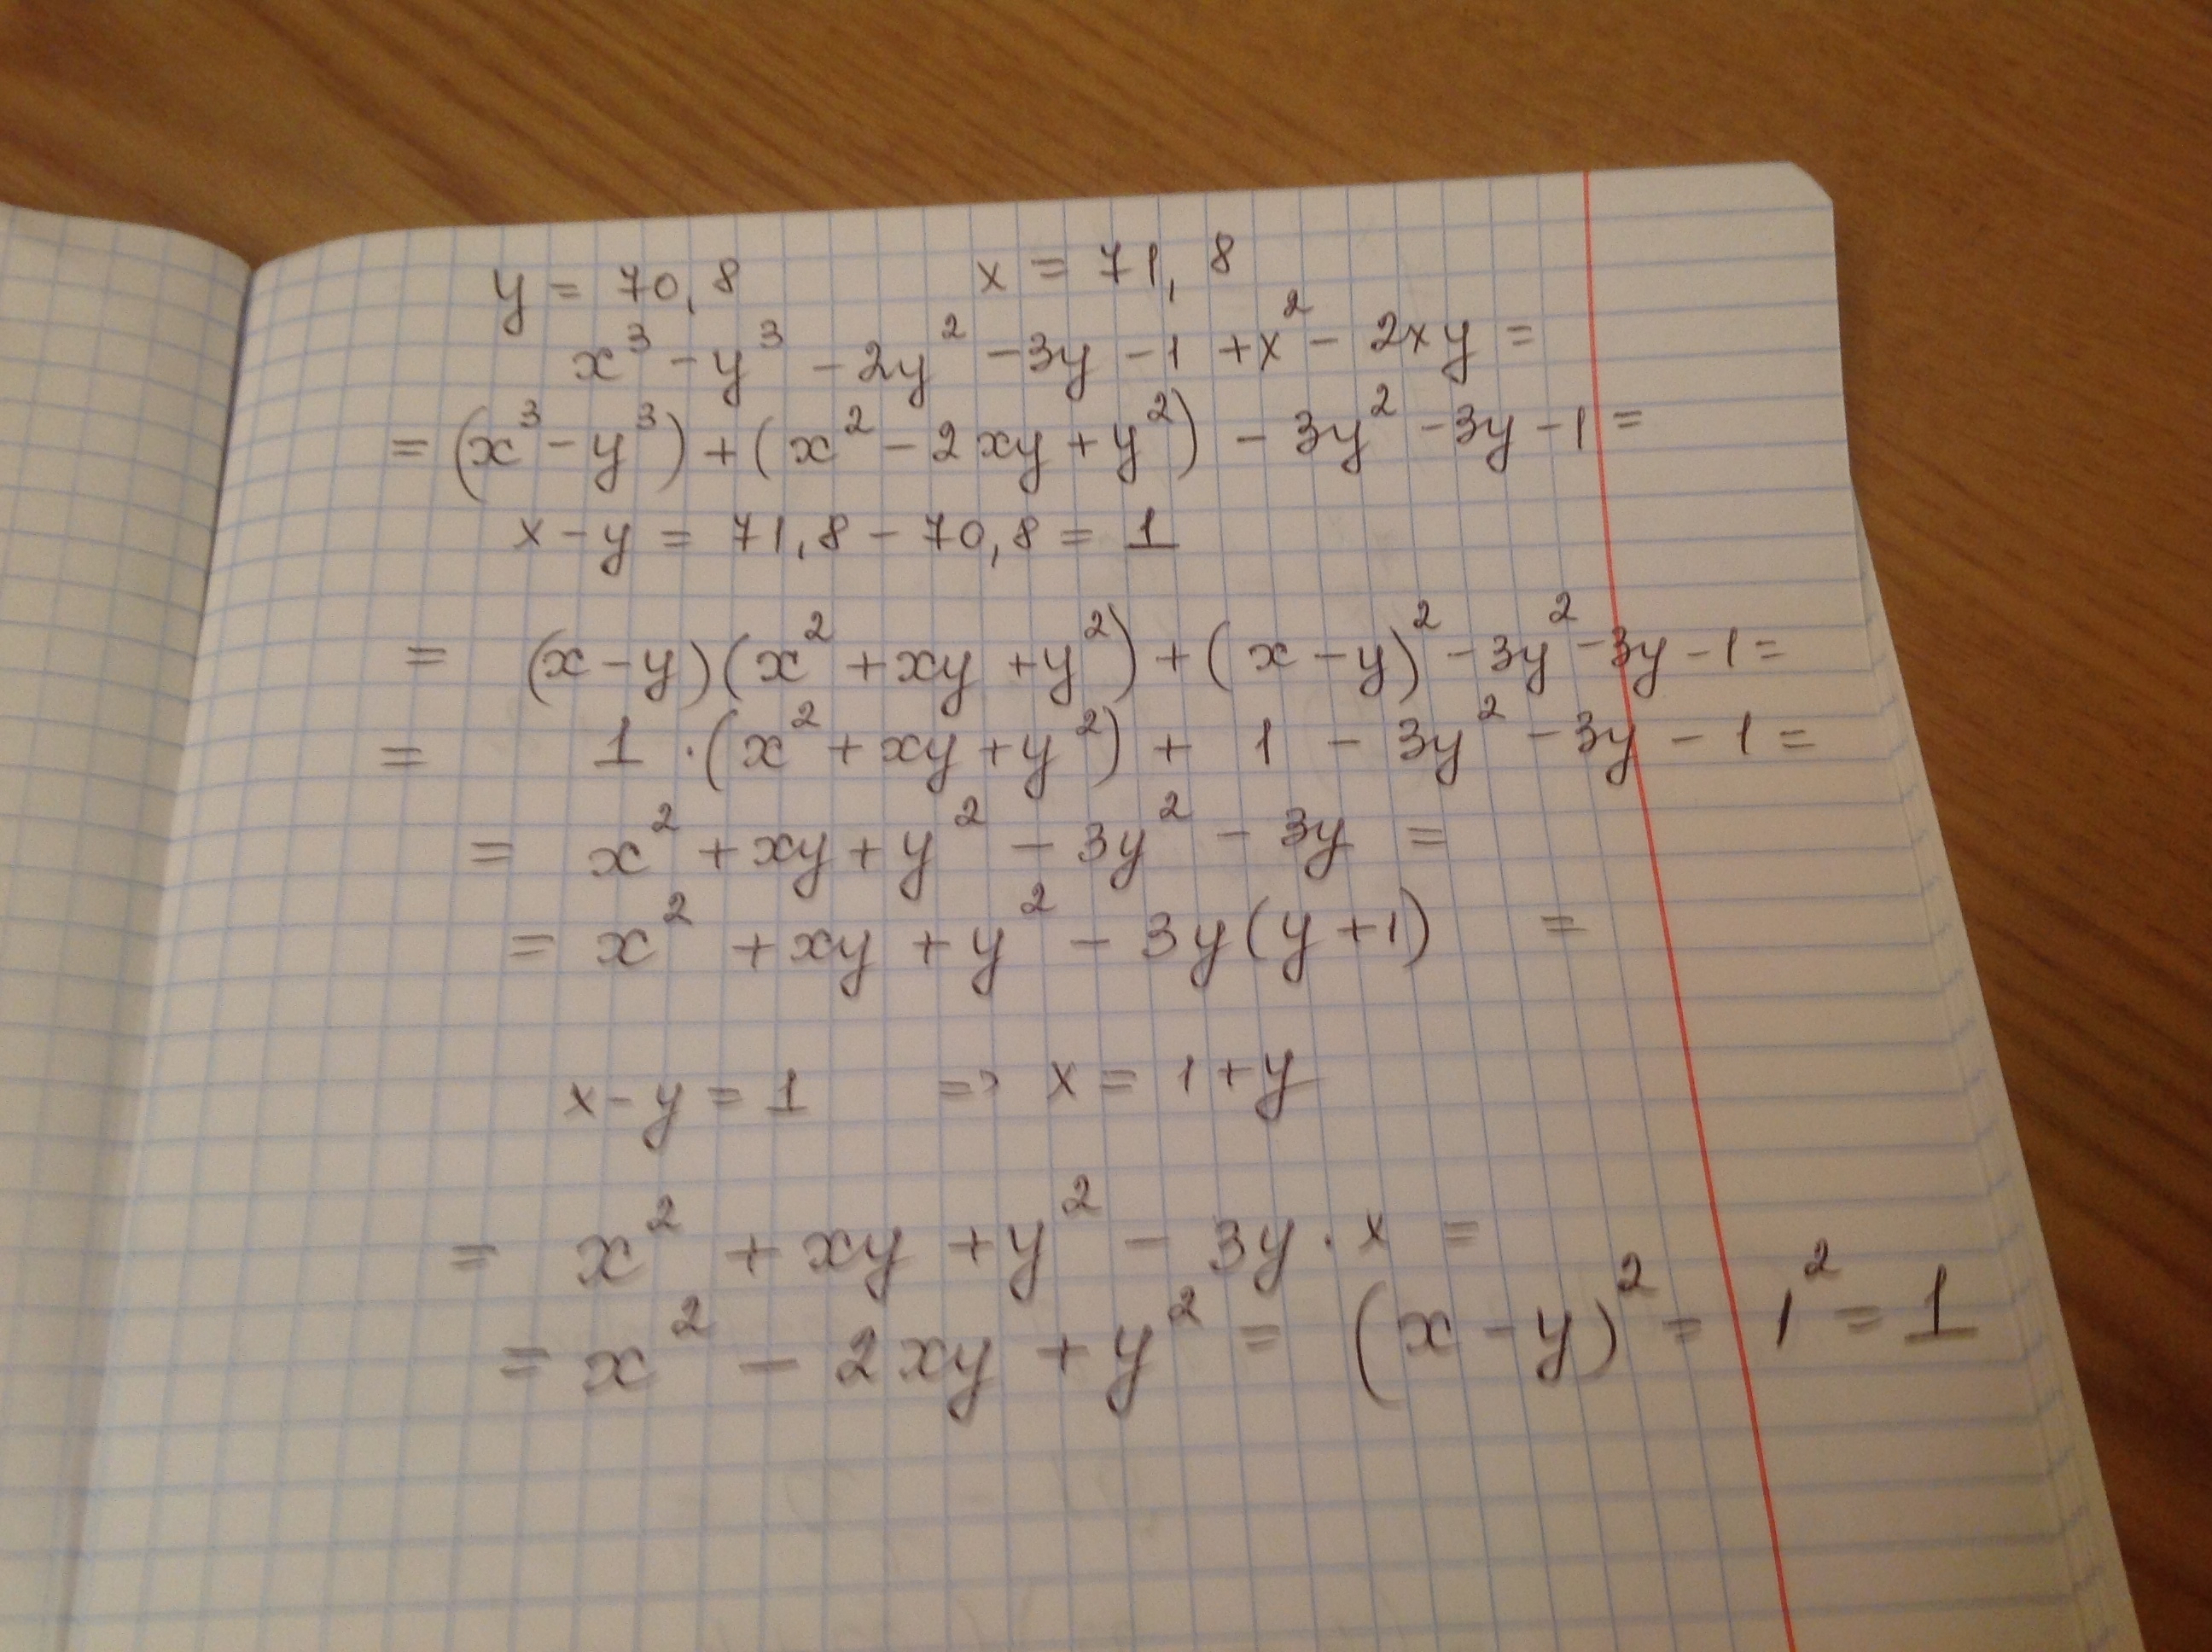 y = 70,8 x = 71,8
x³ - y³ - 2y² - 3y - 1 + x² - 2xy =
= (x³ - y³) + (x² - 2xy + y²) - 3y² - 3y - 1 =
x - y = 71,8 - 70,8 = 1
= (x - y)(x² + xy + y²) + (x - y)² - 3y² - 3y - 1 =
= 1 · (x² + xy + y²) + 1 - 3y² - 3y - 1 =
= x² + xy + y² - 3y² - 3y =
= x² + xy + y² - 3y(y + 1) =
x - y = 1 => x = 1 + y
= x² + xy + y² - 3y · x =
= x² - 2xy + y² = (x - y)² = 1² = 1